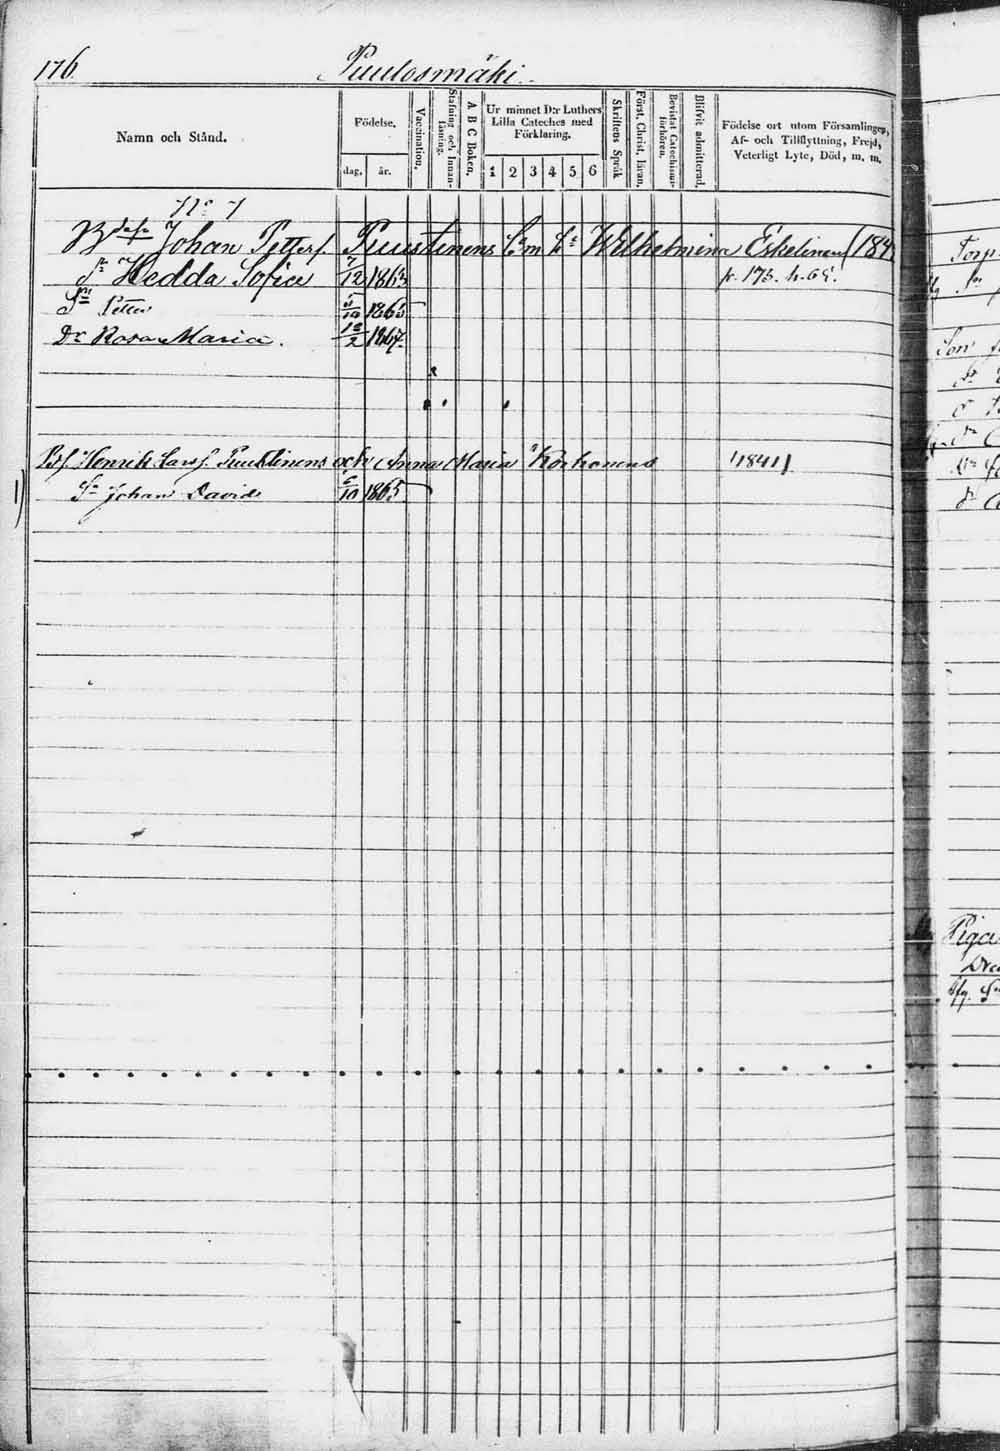 176. Puulosmäki.
Namn och Stånd.
Födelse.
dag. år.
Vaccination.
Stafning och Innanläsning.
A B C Boken.
Ur minnet D:r Luthers Lilla Cateches med Förklaring.
1 2 3 4 5 6
Skriftens Språk
Först. Christ. läran.
Bevistat Catechismiförhören.
Blifvit admitterad.
Födelse ort utom Församlingen, Af- och Tillflyttning, Frejd, Veterligt Lyte, Död, m. m.
No 7
Johan Petterf. Puustinens Wilhelmina Eskelinen (184
Hedda Sofia 7/12 1863 p. 175. h. 65.
Sn Petter 5/10 1865
Dr Rosa Maria. 12/2 1867.
Bf Henrik Larsf. Puustinens och Anna Maria Korhonens 1841
Sn Johan David 6/10 1865
Torp
Son
Piga